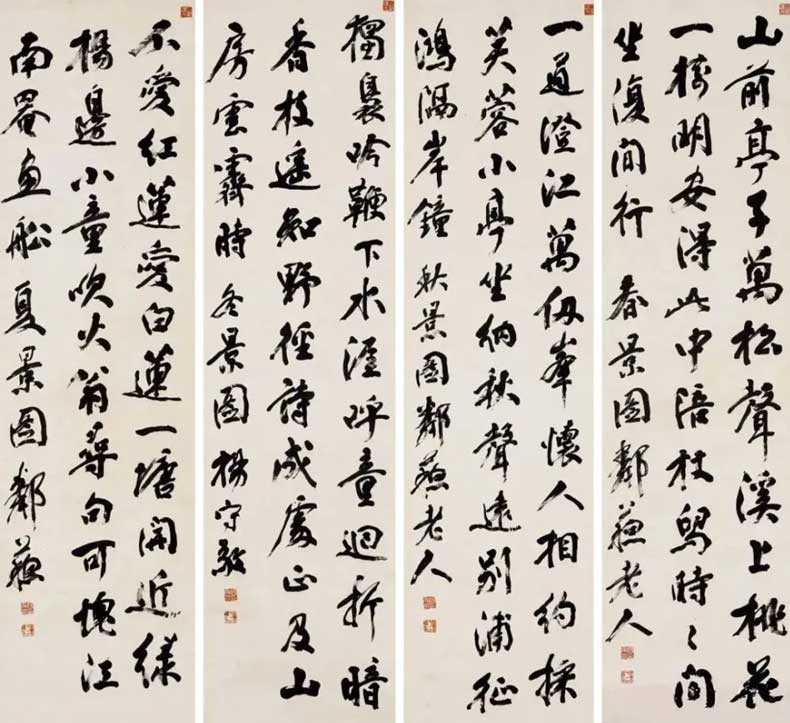 山前亭子萬松聲溪上桃花
一樹明安得此中陪杖舄時〻間
坐復間行 春景圖鄰蘇老人
一道澄江萬仭峯懷人相約採
芙蓉小亭坐納秋聲遠別浦征
鴻隔岸鐘 秋景圖鄰蘇老人
獨裊吟鞭下水涯呼童迴折暗
香枝遥知野徑詩成處正及山
房雲霽時 冬景圖 楊守敬
不愛紅蓮愛白蓮一塘開近綠
楊邊小童吹火翁尋句可愧江
南罨画船 夏景圖 鄰蘇